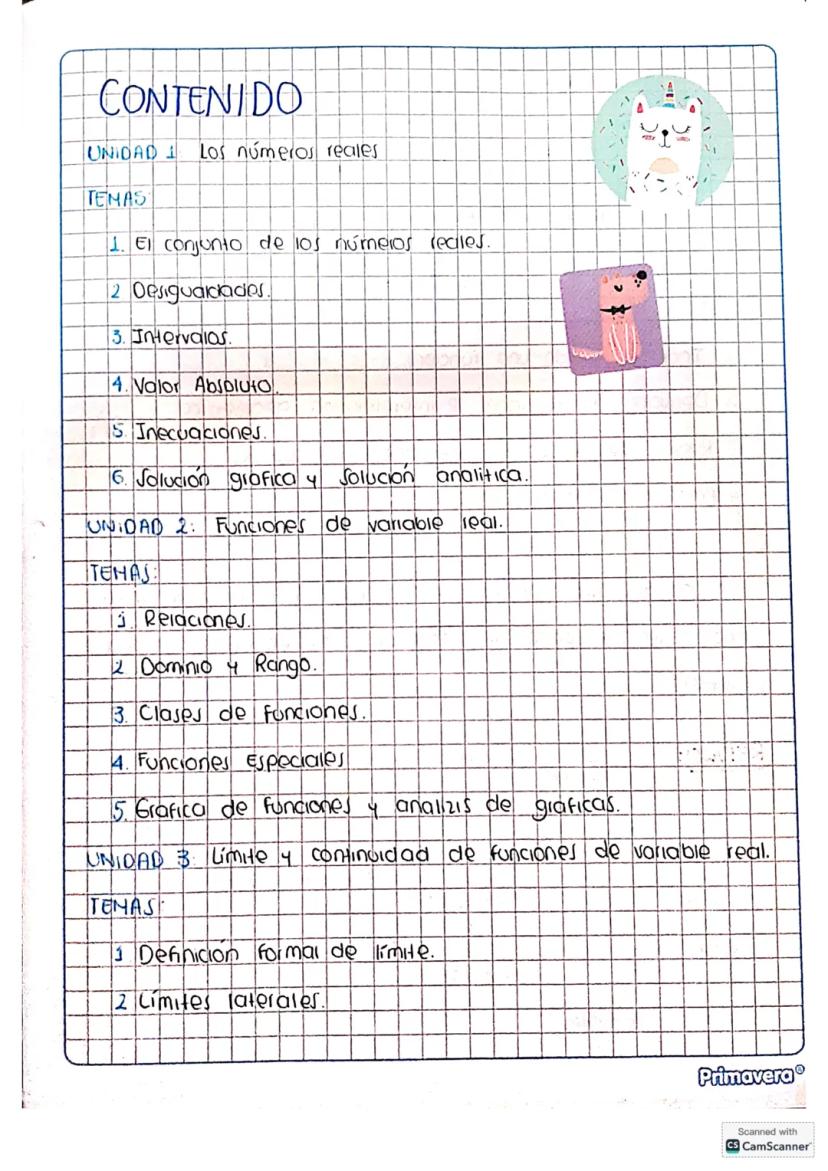 CONTENIDO
UNIDAD 1 Los números reales
TEMAS
1. El conjunto de los números reales.
2 Desigualdades.
3. Intervalos.
4. Valor Absoluto.
5. Inecuaciones.
6. Solución grafica y Solución analitica.
UNIDAD 2: Funciones de variable real.
TEMAS:
1. Relaciones.
2 Dominio y Rango.
3. Clases de funciones.
4. Funciones Especiales
5. Grafica de funciones y analizis de gráficas.
UNIDAD 3: Límite y continuidad de funciones de variable real.
TEMAS:
1 Definición formal de límite.
2 Límites laterales.
Primavera
Scanned with
CS CamScanner